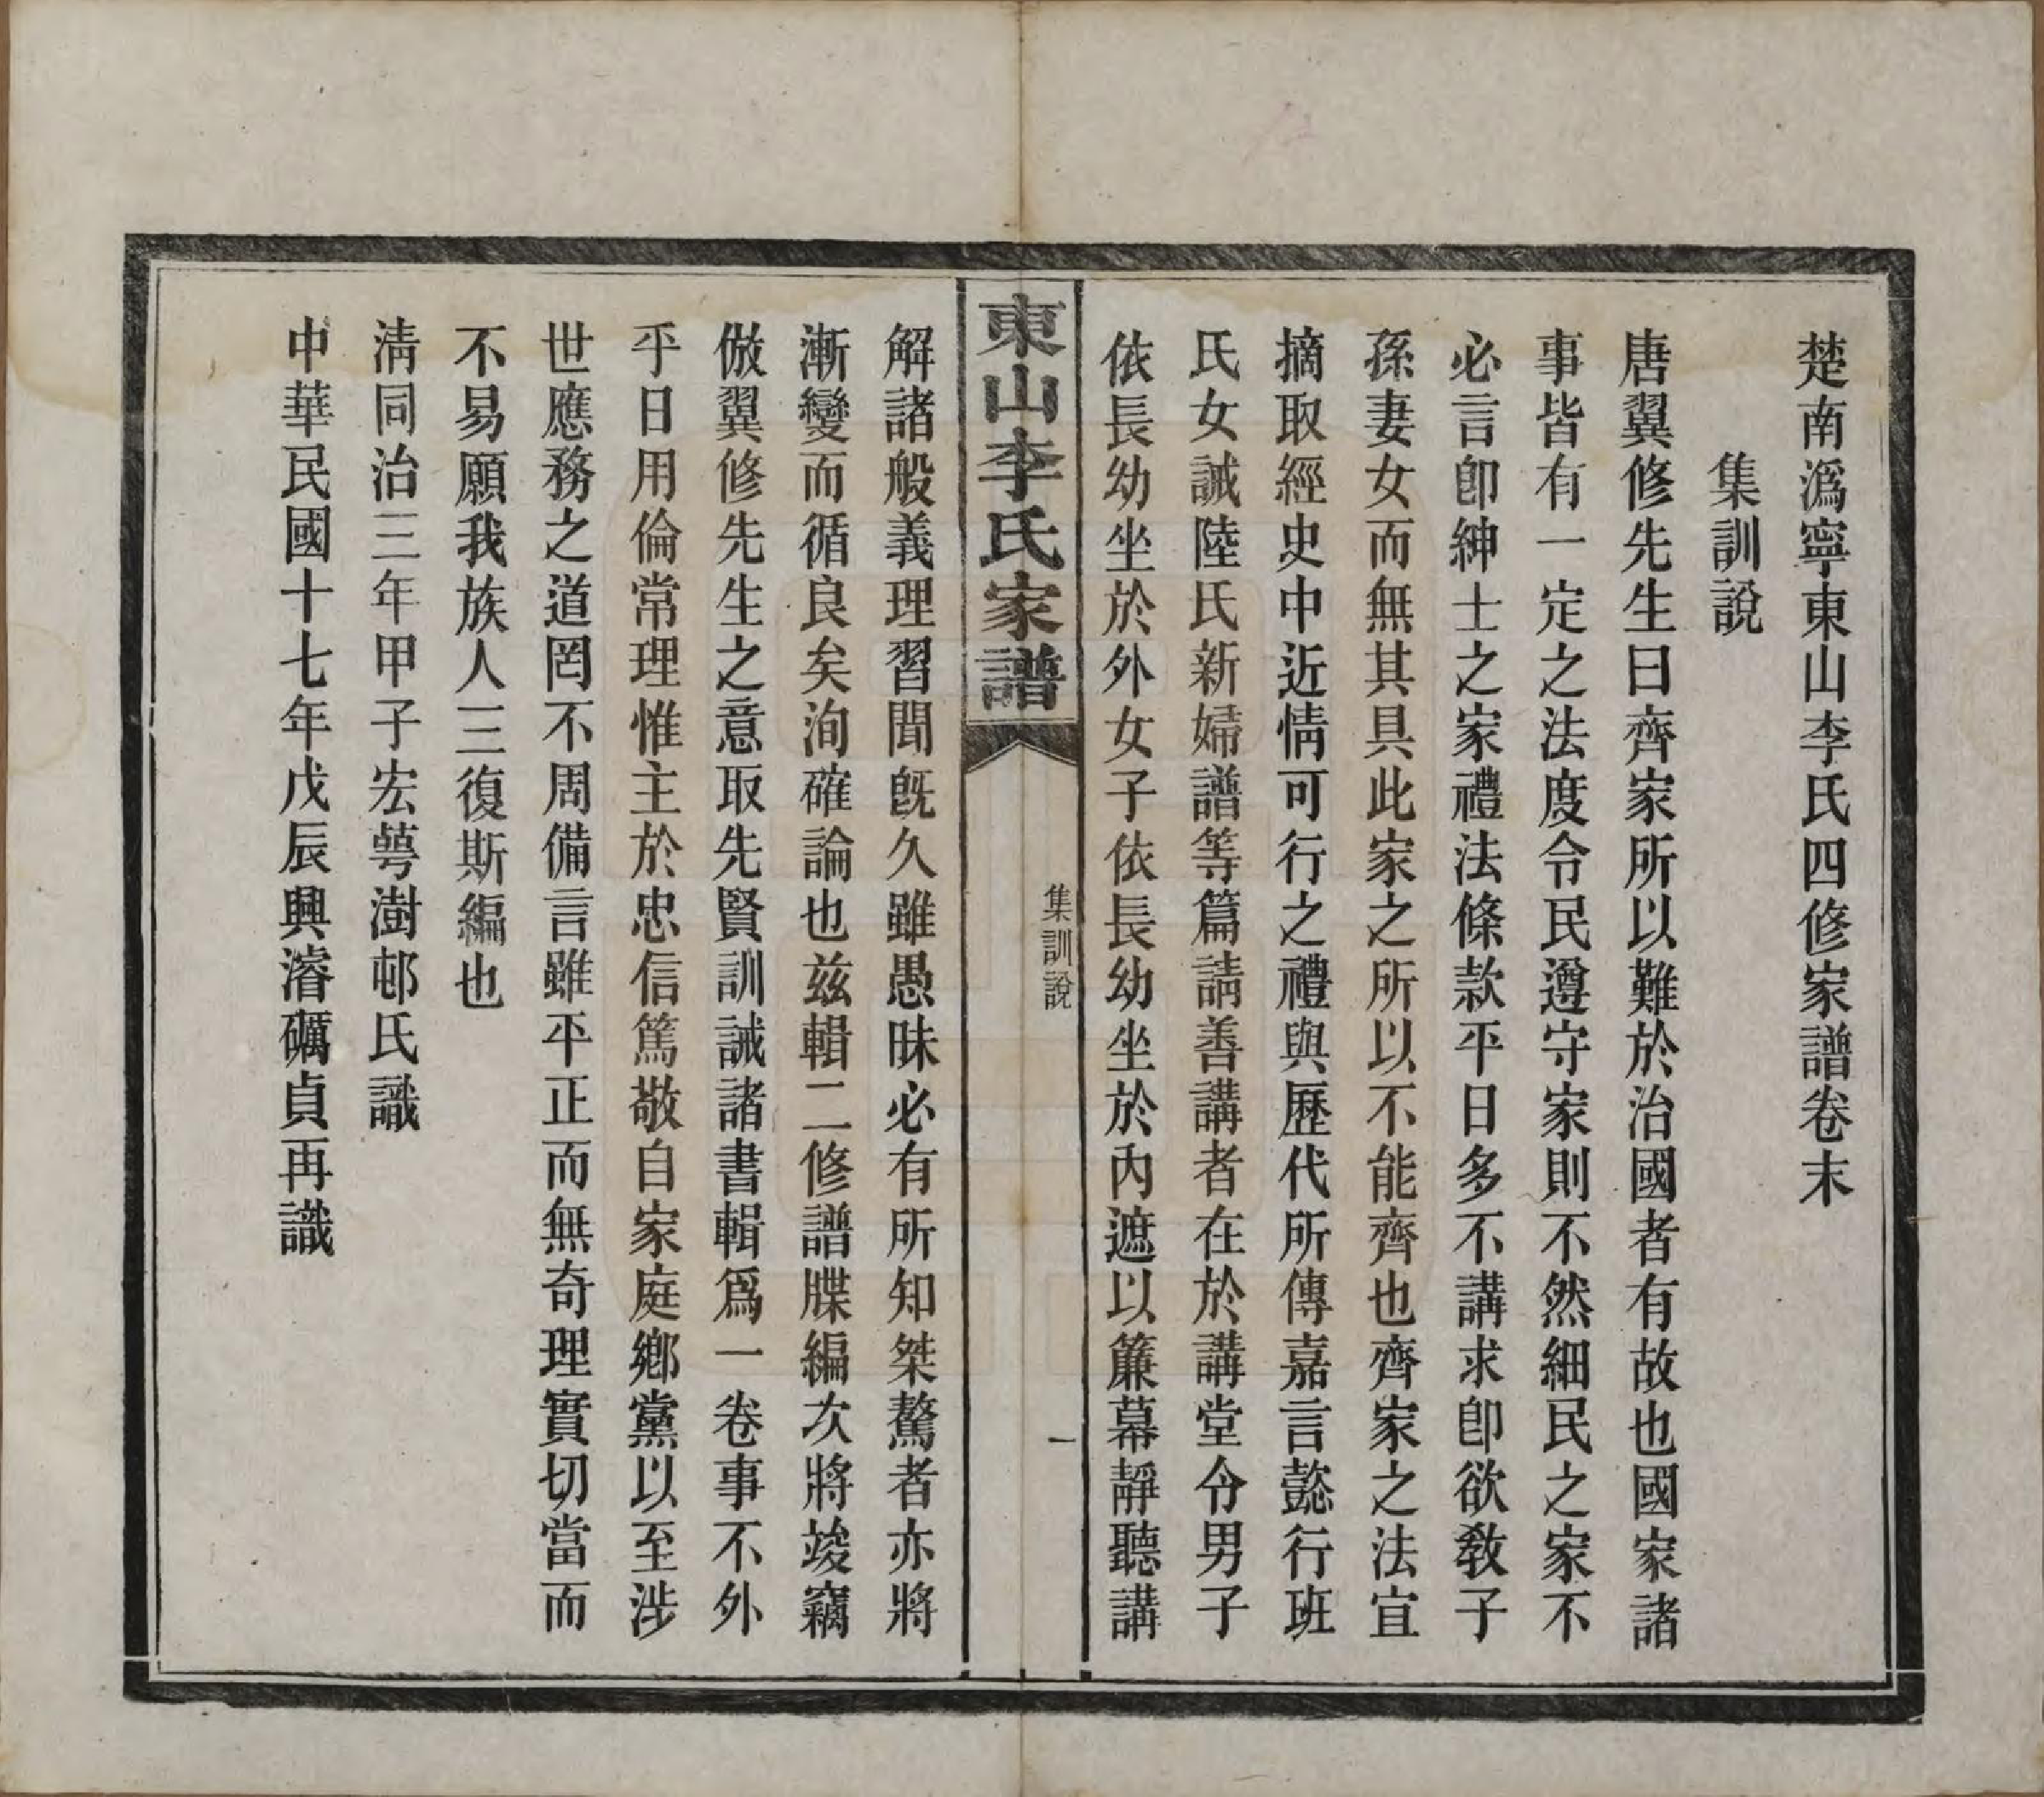 楚南潙寧東山李氏四修家譜卷末
集訓說
唐翼修先生曰齊家所以難於治國者有故也國家諸
事皆有一定之法度令民遵守家則不然細民之家不
必言卽紳士之家禮法條款平日多不講求卽欲敎子
孫妻女而無其具此家之所以不能齊也齊家之法宜
摘取經史中近情可行之禮與歷代所傳嘉言懿行班
氏女誡陸氏新婦譜等篇請善講者在於講堂令男子
依長幼坐於外女子依長幼坐於內遮以簾幕靜聽講
東山李氏家譜
集訓說
一
解諸般義理習聞旣久雖愚昧必有所知桀驁者亦將
漸變而循良矣洵確論也茲輯二修譜牒編次將竣竊
倣翼修先生之意取先賢訓誡諸書輯爲一卷事不外
乎日用倫常理惟主於忠信篤敬自家庭鄕黨以至涉
世應務之道罔不周備言雖平正而無奇理實切當而
不易願我族人三復斯編也
淸同治三年甲子宏萼澍邨氏識
中華民國十七年戊辰興濬礪貞再識